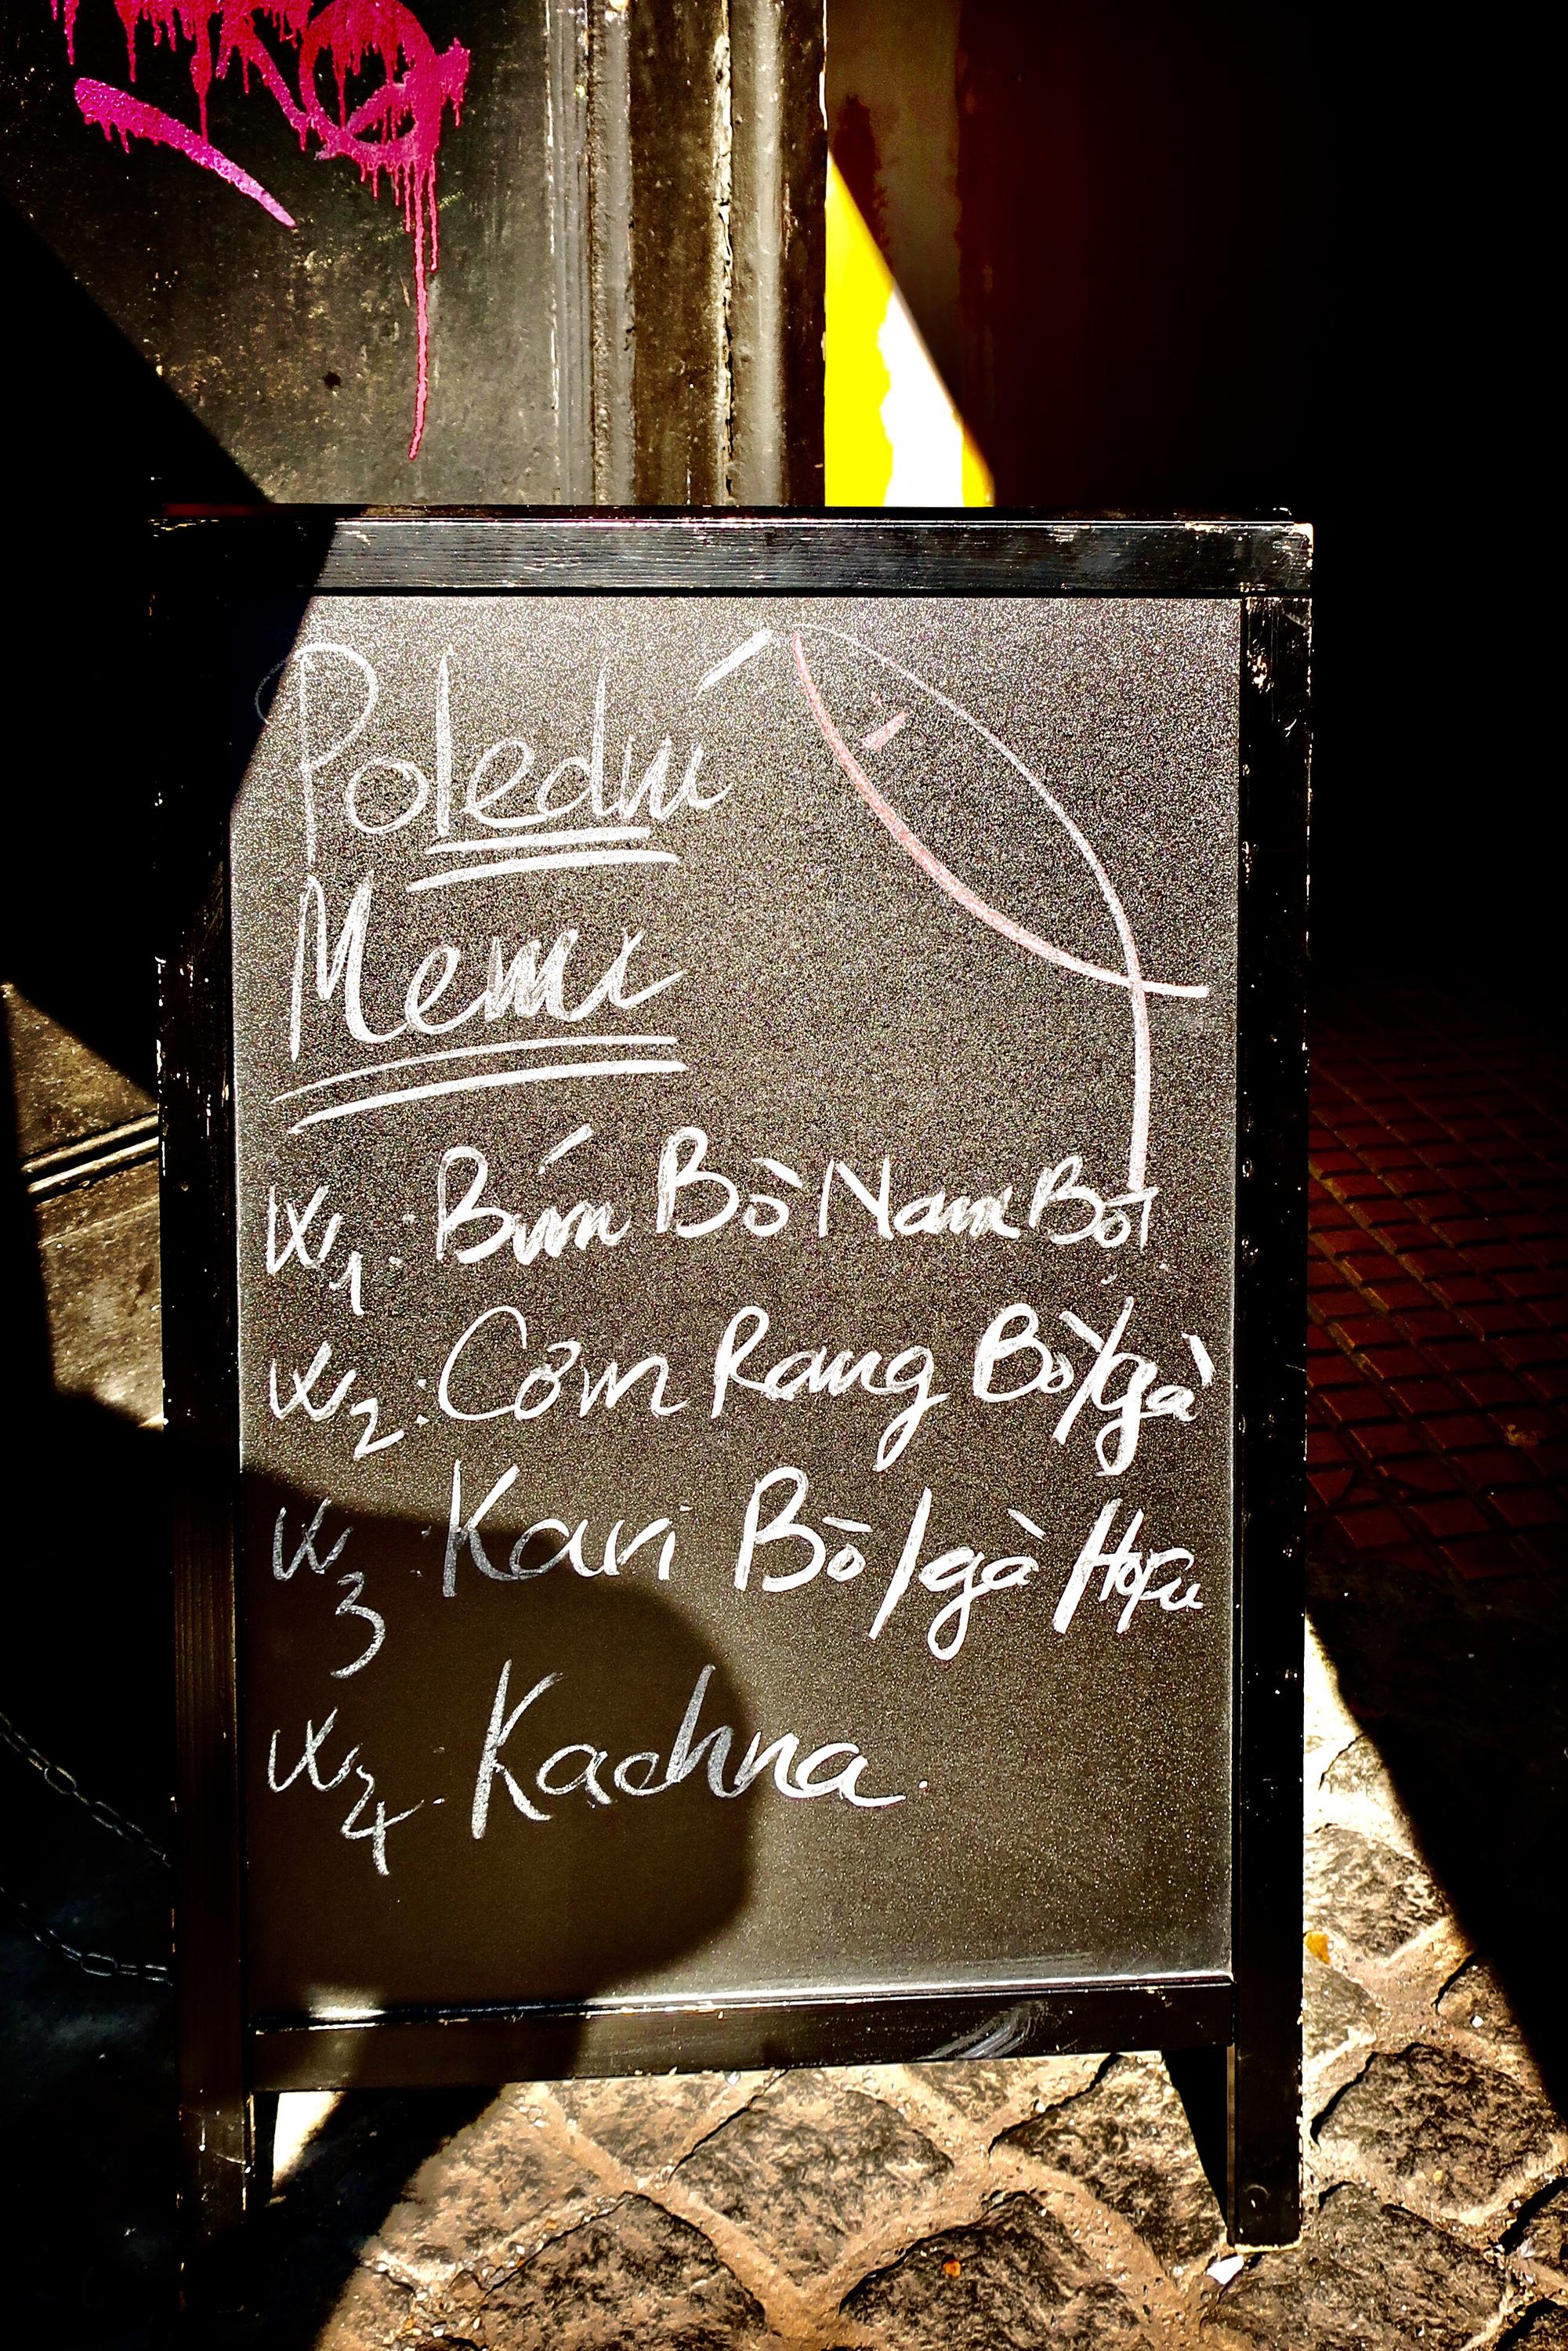 Polední
Menu
W1: Bún Bò Nam Bộ
W2: Cơm Rang Bò/gà
W3: Kari Bò/gà
W4. Kachna.